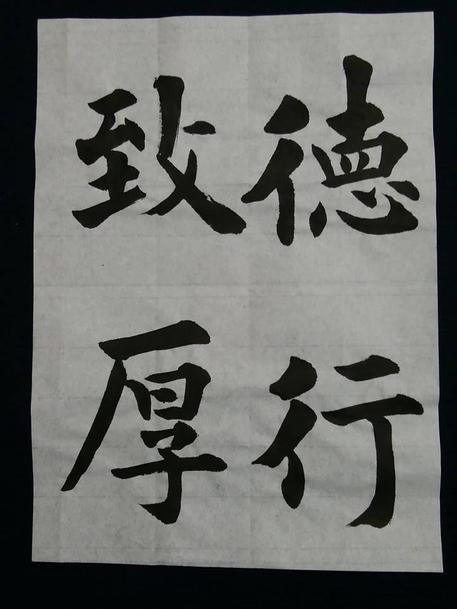 德行
致厚